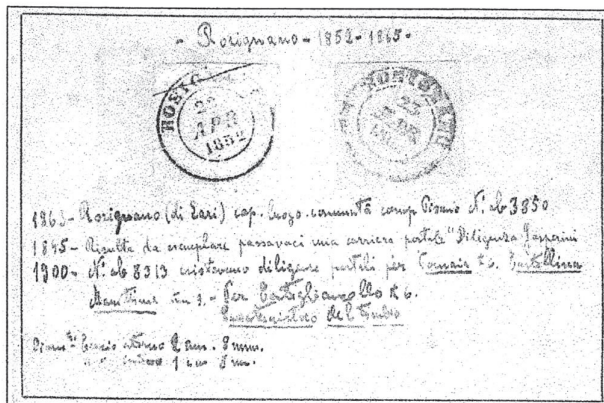 - Rosignano - 1852 - 1865 -
ROSIG
22
APR
1852
23
1863 - Rosignano (di Lari) cap. luogo comunità comp. Pisano N. ab 3850
1845 - Risulta da esemplare passavaci una corriera postale "Diligenza Gasperini
1900 - N. ab 8313 esistevano diligenze postali per Vornaia K 6. Castellina
Marittima 9. - Per Castiglioncello K 6.
Caratteristiche del timbro
esterno 2 cm. 8 mm.
1 cm 8 m.